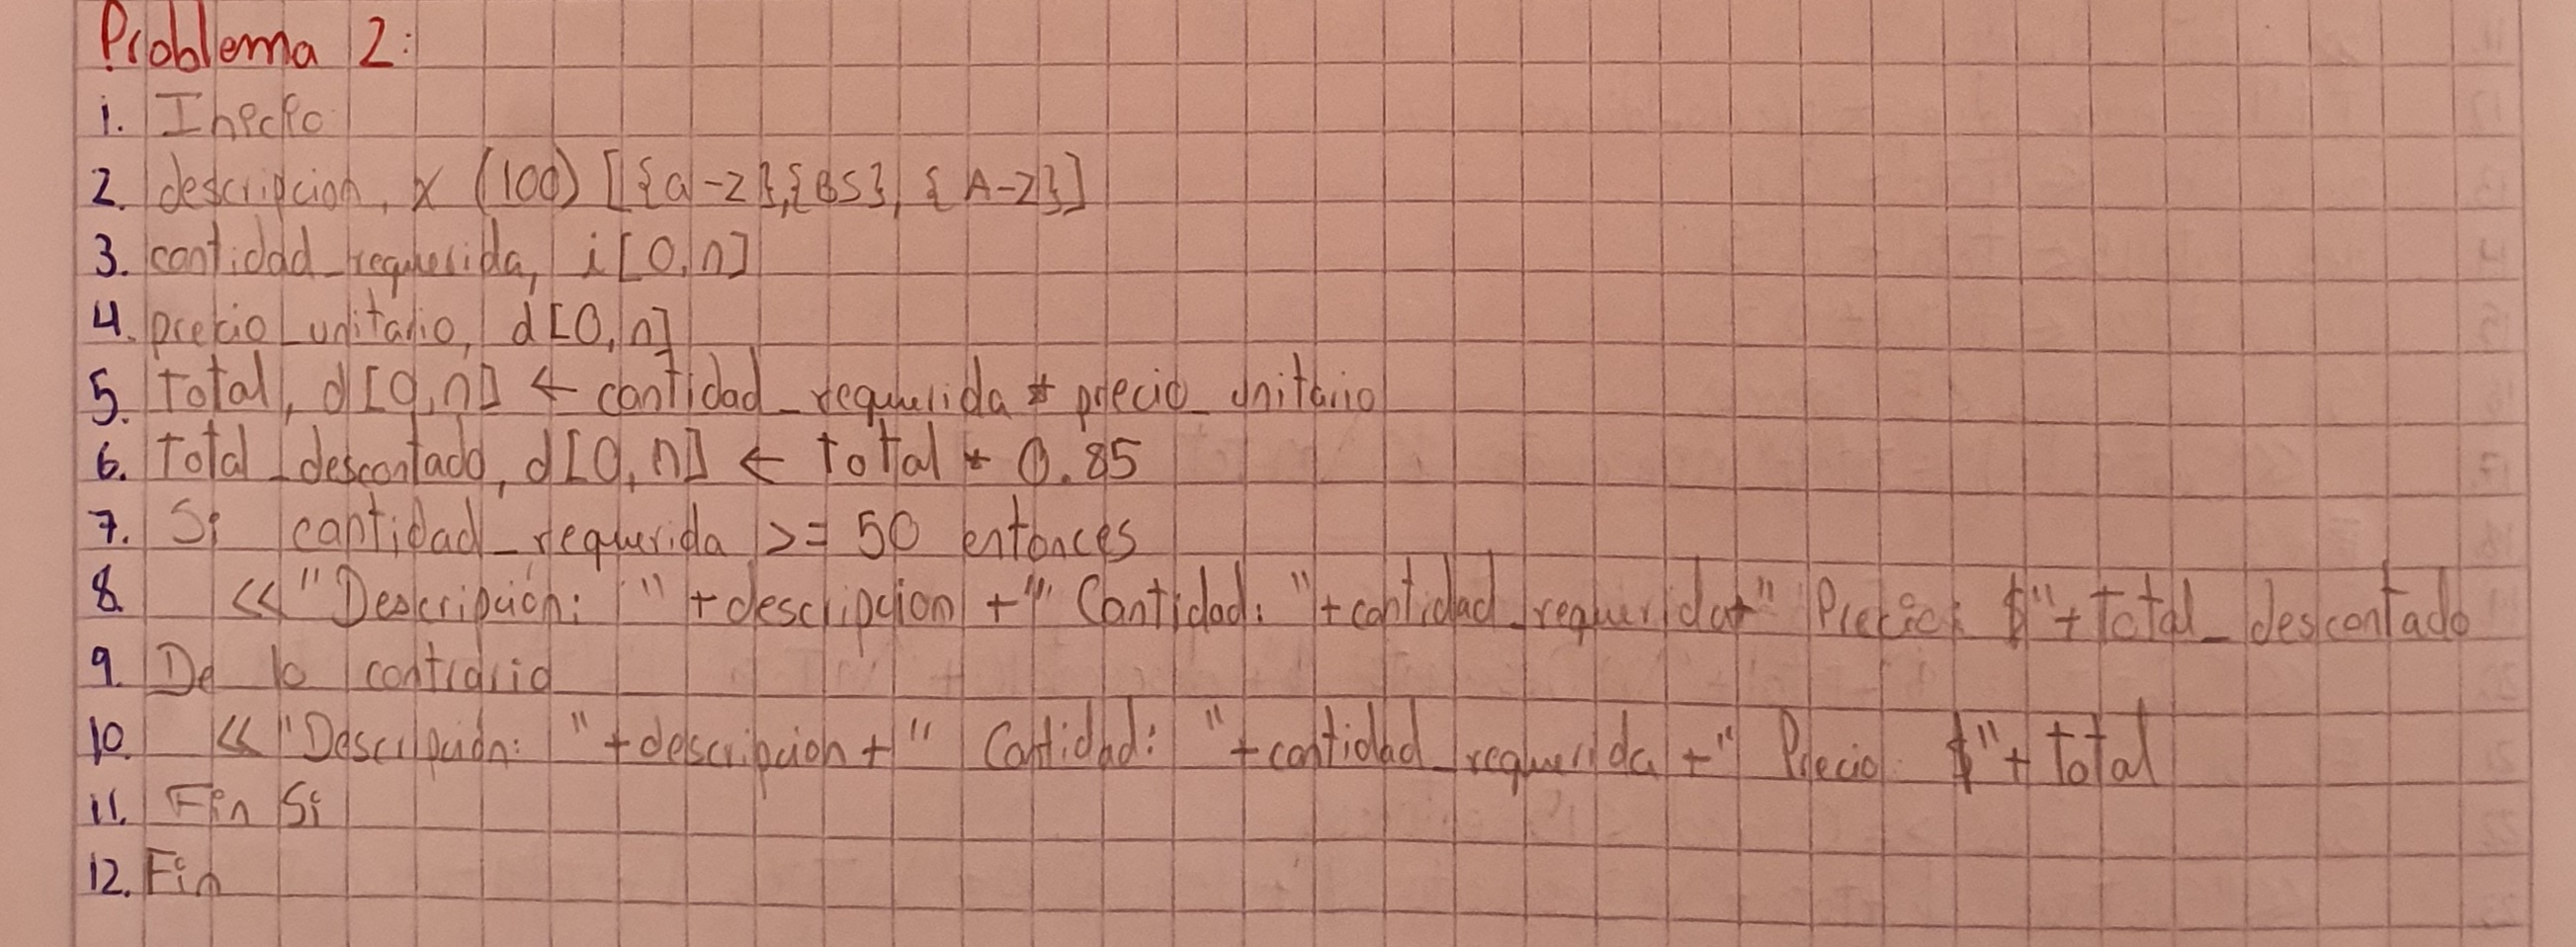 Problema 2:
1. Inicio
2. descripcion, x (100) [{a-z},{BS}, {A-Z}]
3. cantidad_requerida, i[0,n]
4. precio_unitario, d[0,n]
5. total, d[0,n] ← cantidad_requerida * precio_unitario
6. total_descontado, d[0,n] ← total * 0.85
7. Si cantidad_requerida >= 50 entonces
8. << "Descripción: " + descripcion + " Cantidad: " + cantidad_requerida + " Precio: $" + total_descontado
9. De lo contrario
10. << "Descripción: " + descripcion + " Cantidad: " + cantidad_requerida + " Precio $" + total
11. Fin Si
12. Fin